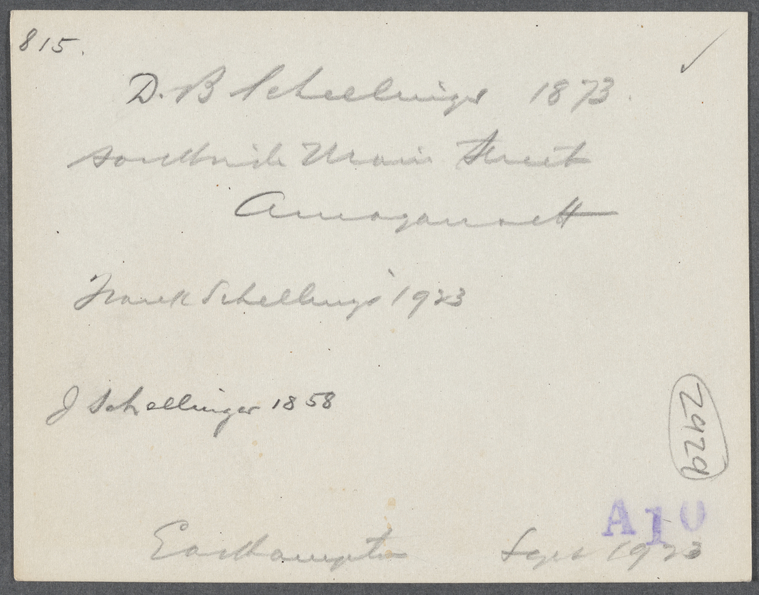 815.
D. B Schellinger 1873.
Southside Main Street
Amagansett
Frank Schellinger 1923
J Schellinger 1858
2929
A10
Easthampton Sept 1923